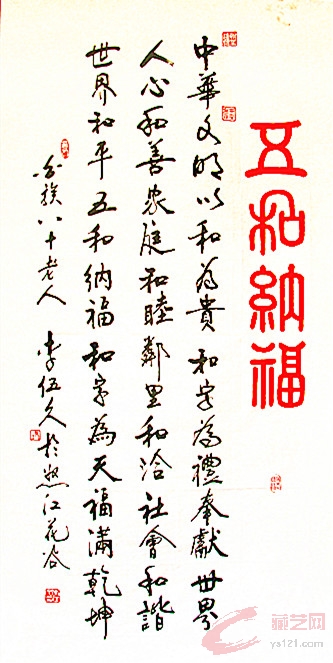 五和納福
中華文明以和為貴和字為禮奉獻世界
人心和善家庭和睦鄰里和洽社會和諧
世界和平五和納福和字為天福滿乾坤
族八十老人李伍久於怒江花谷
藏艺网
ys121.com